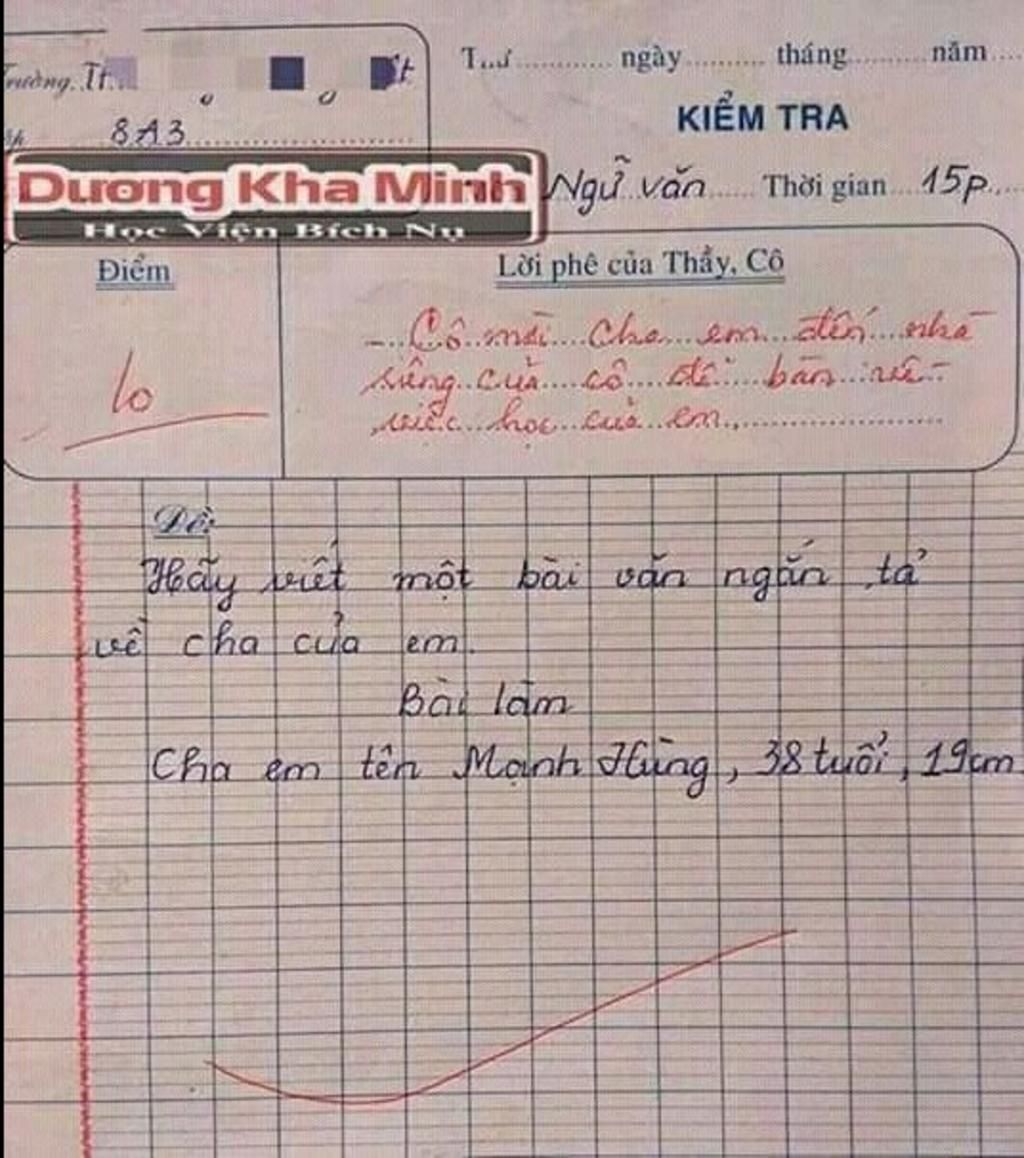 Trường Tr
8A3
Thứ ............ ngày .......... tháng .......... năm ....
KIỂM TRA
Ngữ văn ...... Thời gian ...15p....
Dương Kha Minh
Học Viện Bích Nụ
Điểm
10
Lời phê của Thầy, Cô
- Cô mời cha em đến nhà
riêng của cô để bàn về
việc học của em.
Đề:
Hãy viết một bài văn ngắn tả
về cha của em.
Bài làm
Cha em tên Mạnh Hùng, 38 tuổi, 19cm